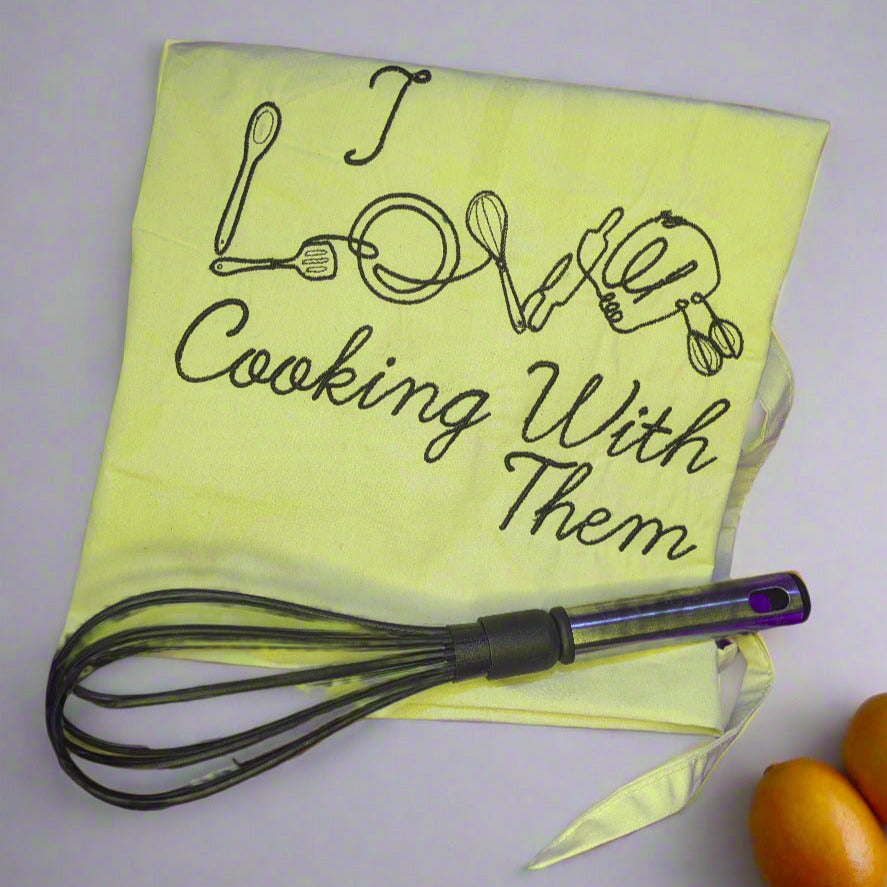 I
Love
Cooking With
Them